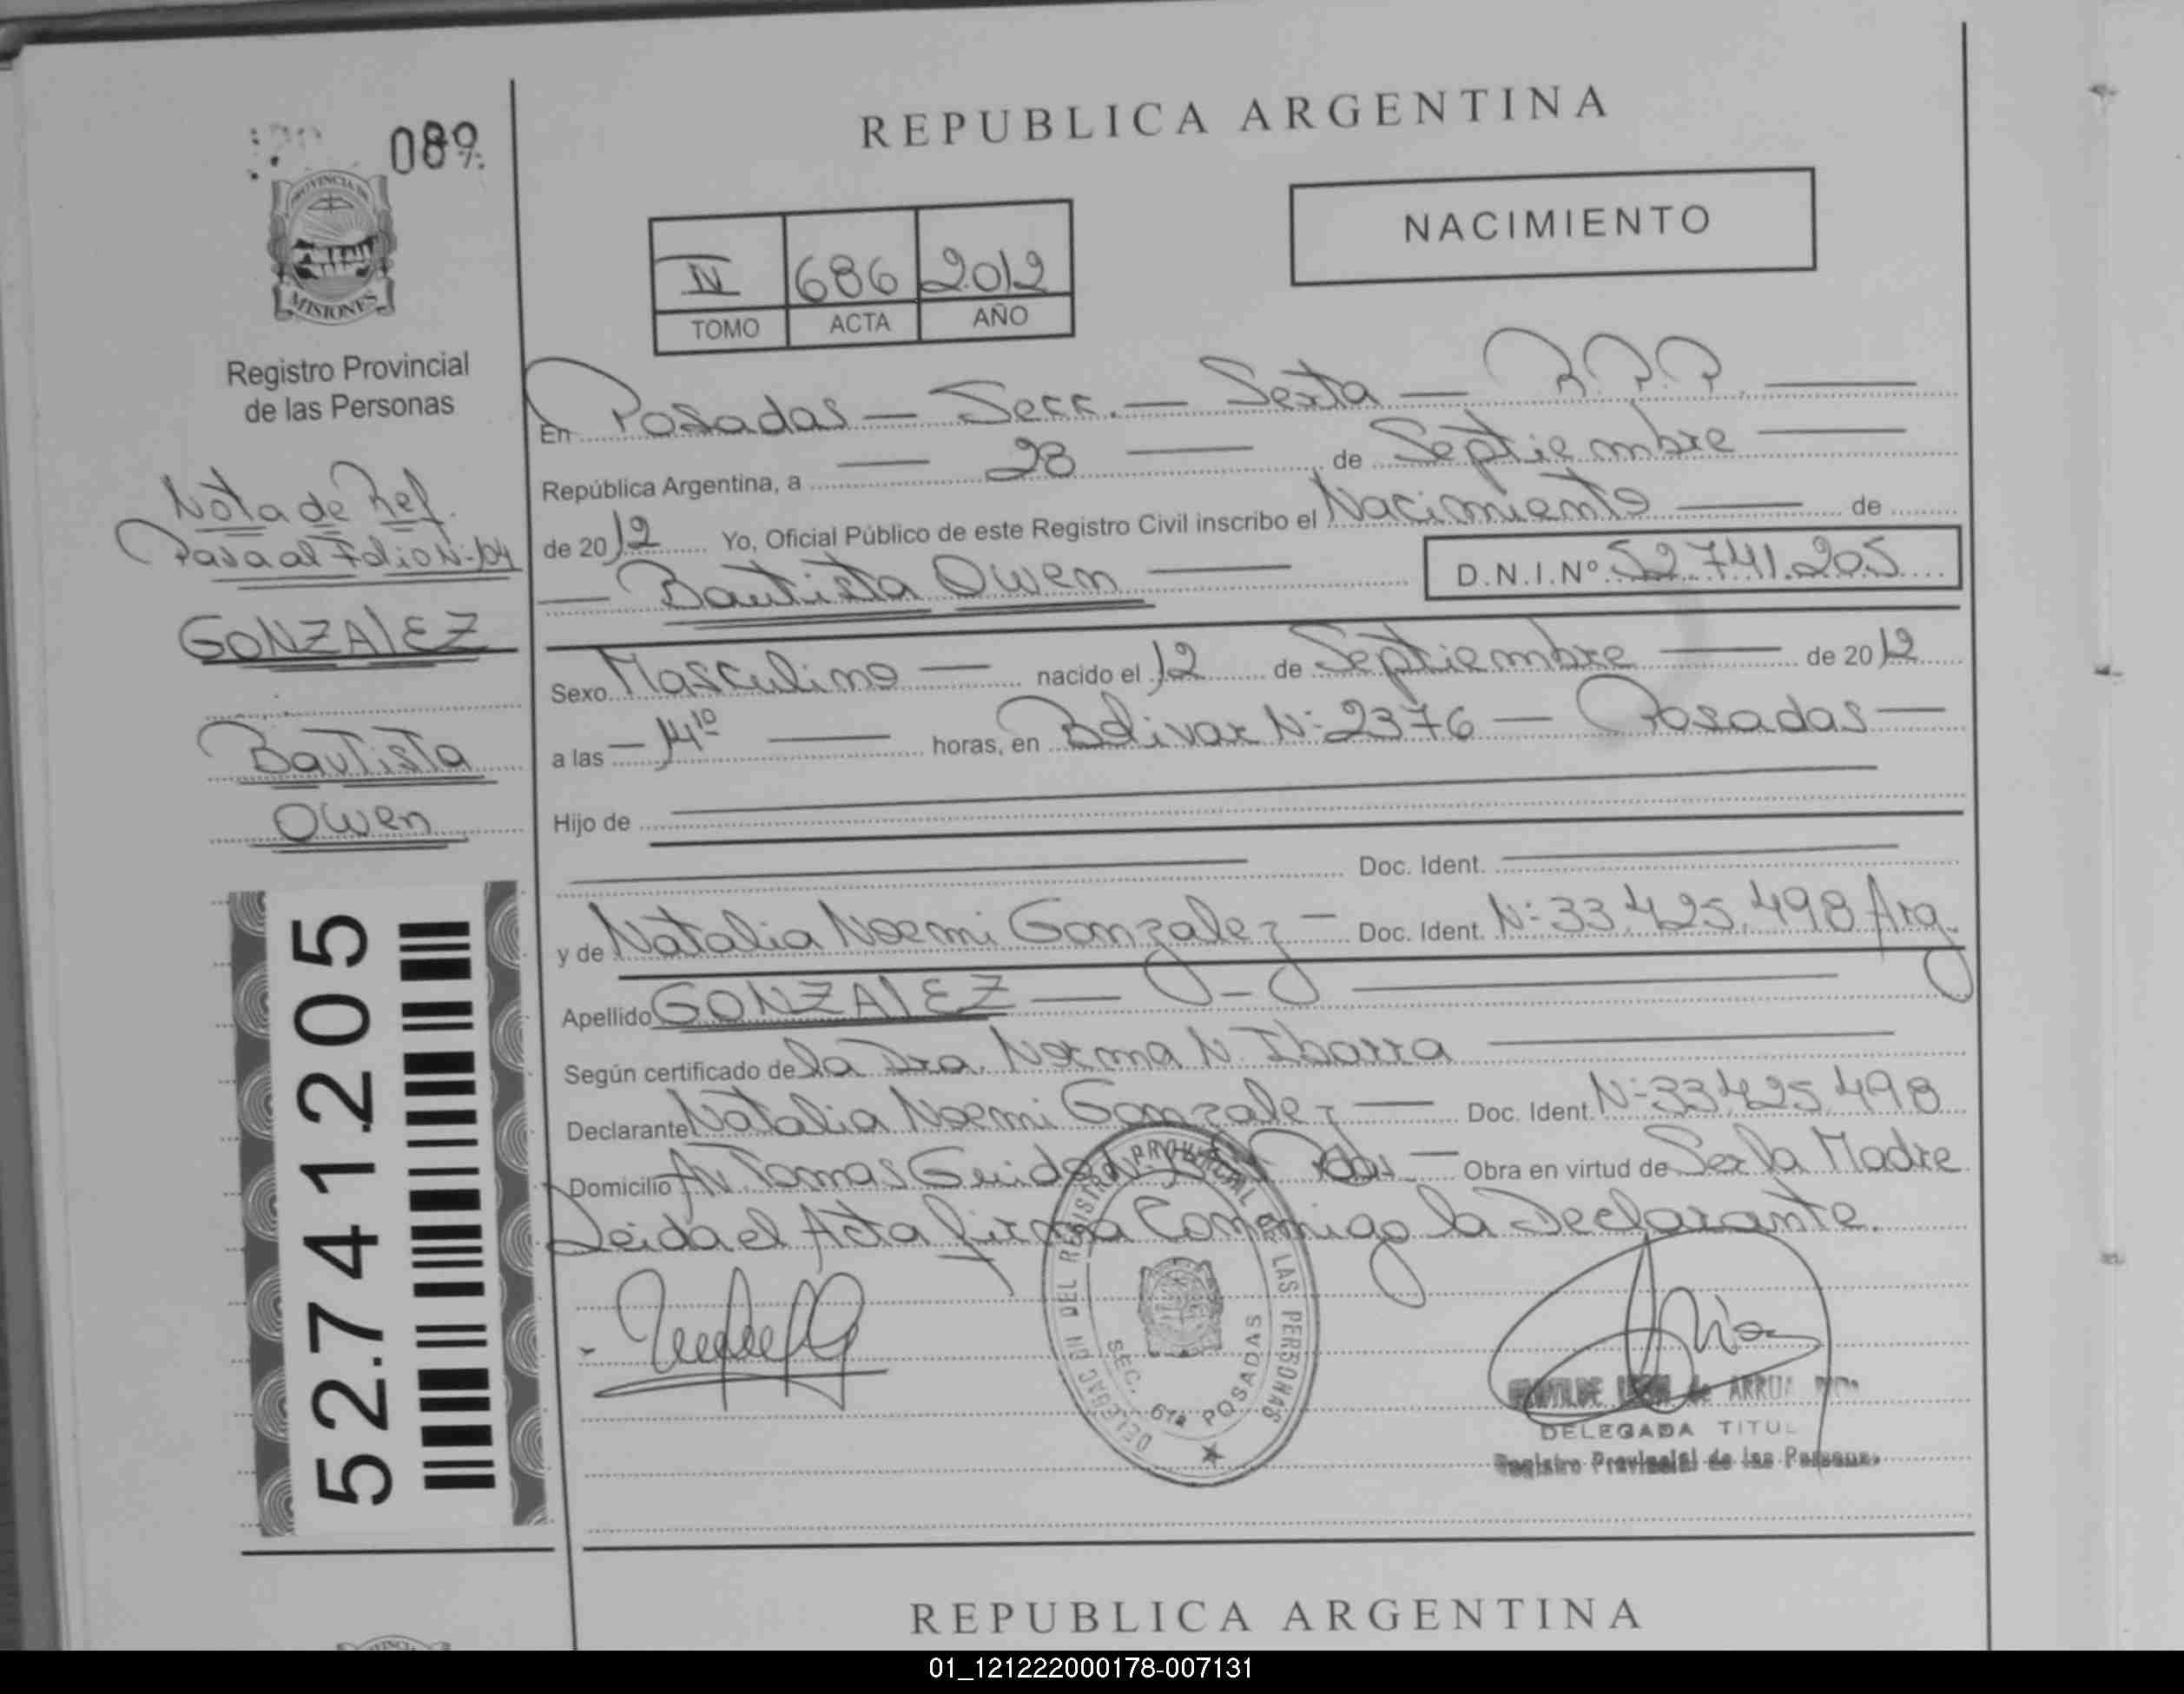 REPUBLICA ARGENTINA
089
PROVINCIA DE
MISIONES
Registro Provincial
de las Personas
NACIMIENTO
IV 686 2012
TOMO ACTA AÑO
En Posadas — Secc. — Sexta — R.P.P.
República Argentina, a — 28 — de Septiembre —
de 2012 Yo, Oficial Público de este Registro Civil inscribo el Nacimiento — de
— Bautista Owen — D.N.I.Nº 52.741.205
Nota de Ref.
Pasa al Folio Nº 104
GONZALEZ
Bautista
Owen
52.741.205
Sexo Masculino — nacido el 12 de Septiembre — de 2012
a las — 14¹⁰ — horas, en Bolivar Nº 2376 — Posadas —
Hijo de
Doc. Ident.
y de Natalia Noemi Gonzalez — Doc. Ident. Nº 33.425.498 Arg.
Apellido GONZALEZ —
Según certificado de la Dra. Norma N. Ibarra
Declarante Natalia Noemi Gonzalez — Doc. Ident. Nº 33.425.498
Domicilio Av. Tomas Guido — Obra en virtud de Ser la Madre
Leida el Acta firma Conmigo la Declarante.
DELEGAC DEL REGISTRO PROVINCIAL DE LAS PERSONAS
SEC. 6ta POSADAS
de ARRUA
DELEGADA TITUL
Registro Provincial de las Personas
REPUBLICA ARGENTINA
01_121222000178-007131